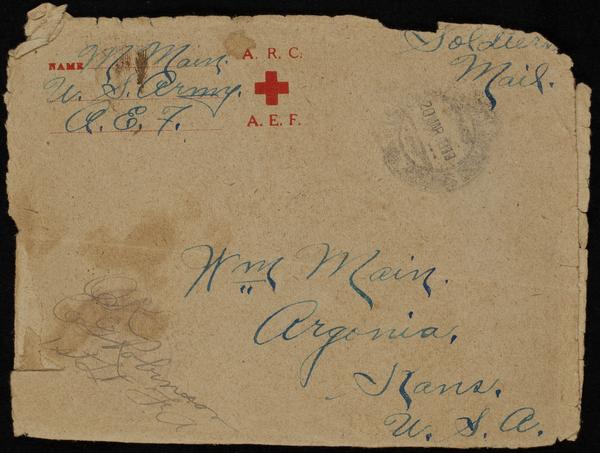 NAME W. Main.
U. S. Army.
A. E. F.
A. R. C.
A. E. F.
Soldier's
Mail.
Wm Main.
Argonia,
Kans.
U. S. A.
OK
Robinson